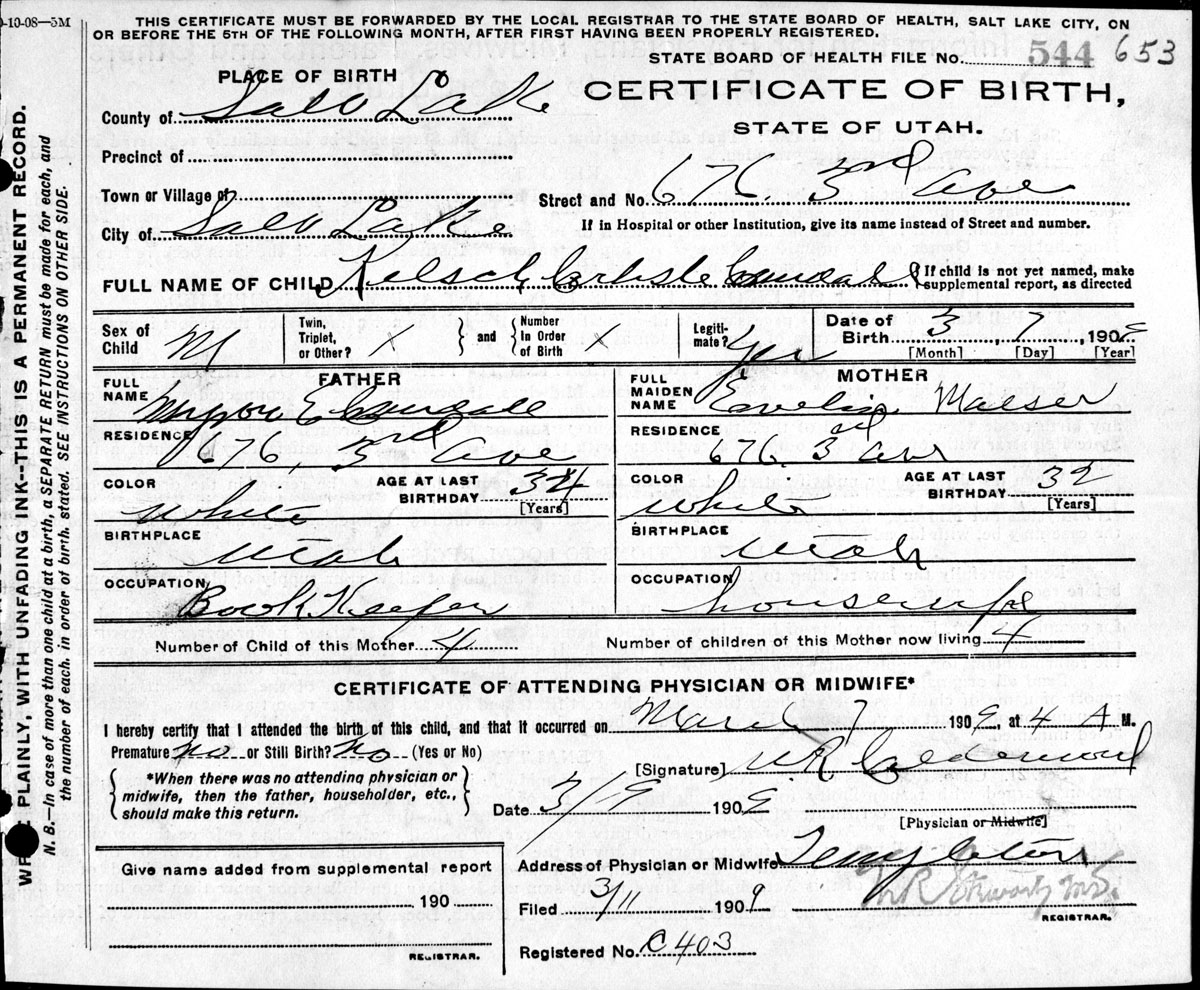 0-10-08—5M
THIS CERTIFICATE MUST BE FORWARDED BY THE LOCAL REGISTRAR TO THE STATE BOARD OF HEALTH, SALT LAKE CITY, ON
OR BEFORE THE 5TH OF THE FOLLOWING MONTH, AFTER FIRST HAVING BEEN PROPERLY REGISTERED.
STATE BOARD OF HEALTH FILE No. 544 653
PLACE OF BIRTH
CERTIFICATE OF BIRTH,
STATE OF UTAH.
County of Salt Lake
Precinct of
Town or Village of
Street and No. 676. 3rd Ave
City of Salt Lake
If in Hospital or other Institution, give its name instead of Street and number.
FULL NAME OF CHILD Kelsch Carlisle Crandall { If child is not yet named, make
supplemental report, as directed
Sex of Child M
Twin, Triplet, or Other? X } and { Number In Order of Birth X
Legitimate? Yes
Date of Birth 3, 7, 1909
[Month] [Day] [Year]
FATHER
FULL NAME Myron E Crandall
RESIDENCE 676, 3rd Ave
COLOR White
AGE AT LAST BIRTHDAY 34 [Years]
BIRTHPLACE Utah
OCCUPATION Book Keeper
MOTHER
FULL MAIDEN NAME Eveline Maeser
RESIDENCE 676. 3rd Ave
COLOR White
AGE AT LAST BIRTHDAY 32 [Years]
BIRTHPLACE Utah
OCCUPATION housewife
Number of Child of this Mother 4
Number of children of this Mother now living 4
CERTIFICATE OF ATTENDING PHYSICIAN OR MIDWIFE*
I hereby certify that I attended the birth of this child, and that it occurred on March 7 1909, at 4 A M.
Premature no or Still Birth? no (Yes or No)
{ *When there was no attending physician or
midwife, then the father, householder, etc.,
should make this return. }
[Signature] W.R. Calderwood
Date 3/9 1909
[Physician or Midwife]
Give name added from supplemental report
190
REGISTRAR.
Address of Physician or Midwife Templeton
Filed 3/11 1909
REGISTRAR.
Registered No. C 403
WRITE PLAINLY, WITH UNFADING INK--THIS IS A PERMANENT RECORD.
N. B.—In case of more than one child at a birth, a SEPARATE RETURN must be made for each, and
the number of each, in order of birth, stated. SEE INSTRUCTIONS ON OTHER SIDE.